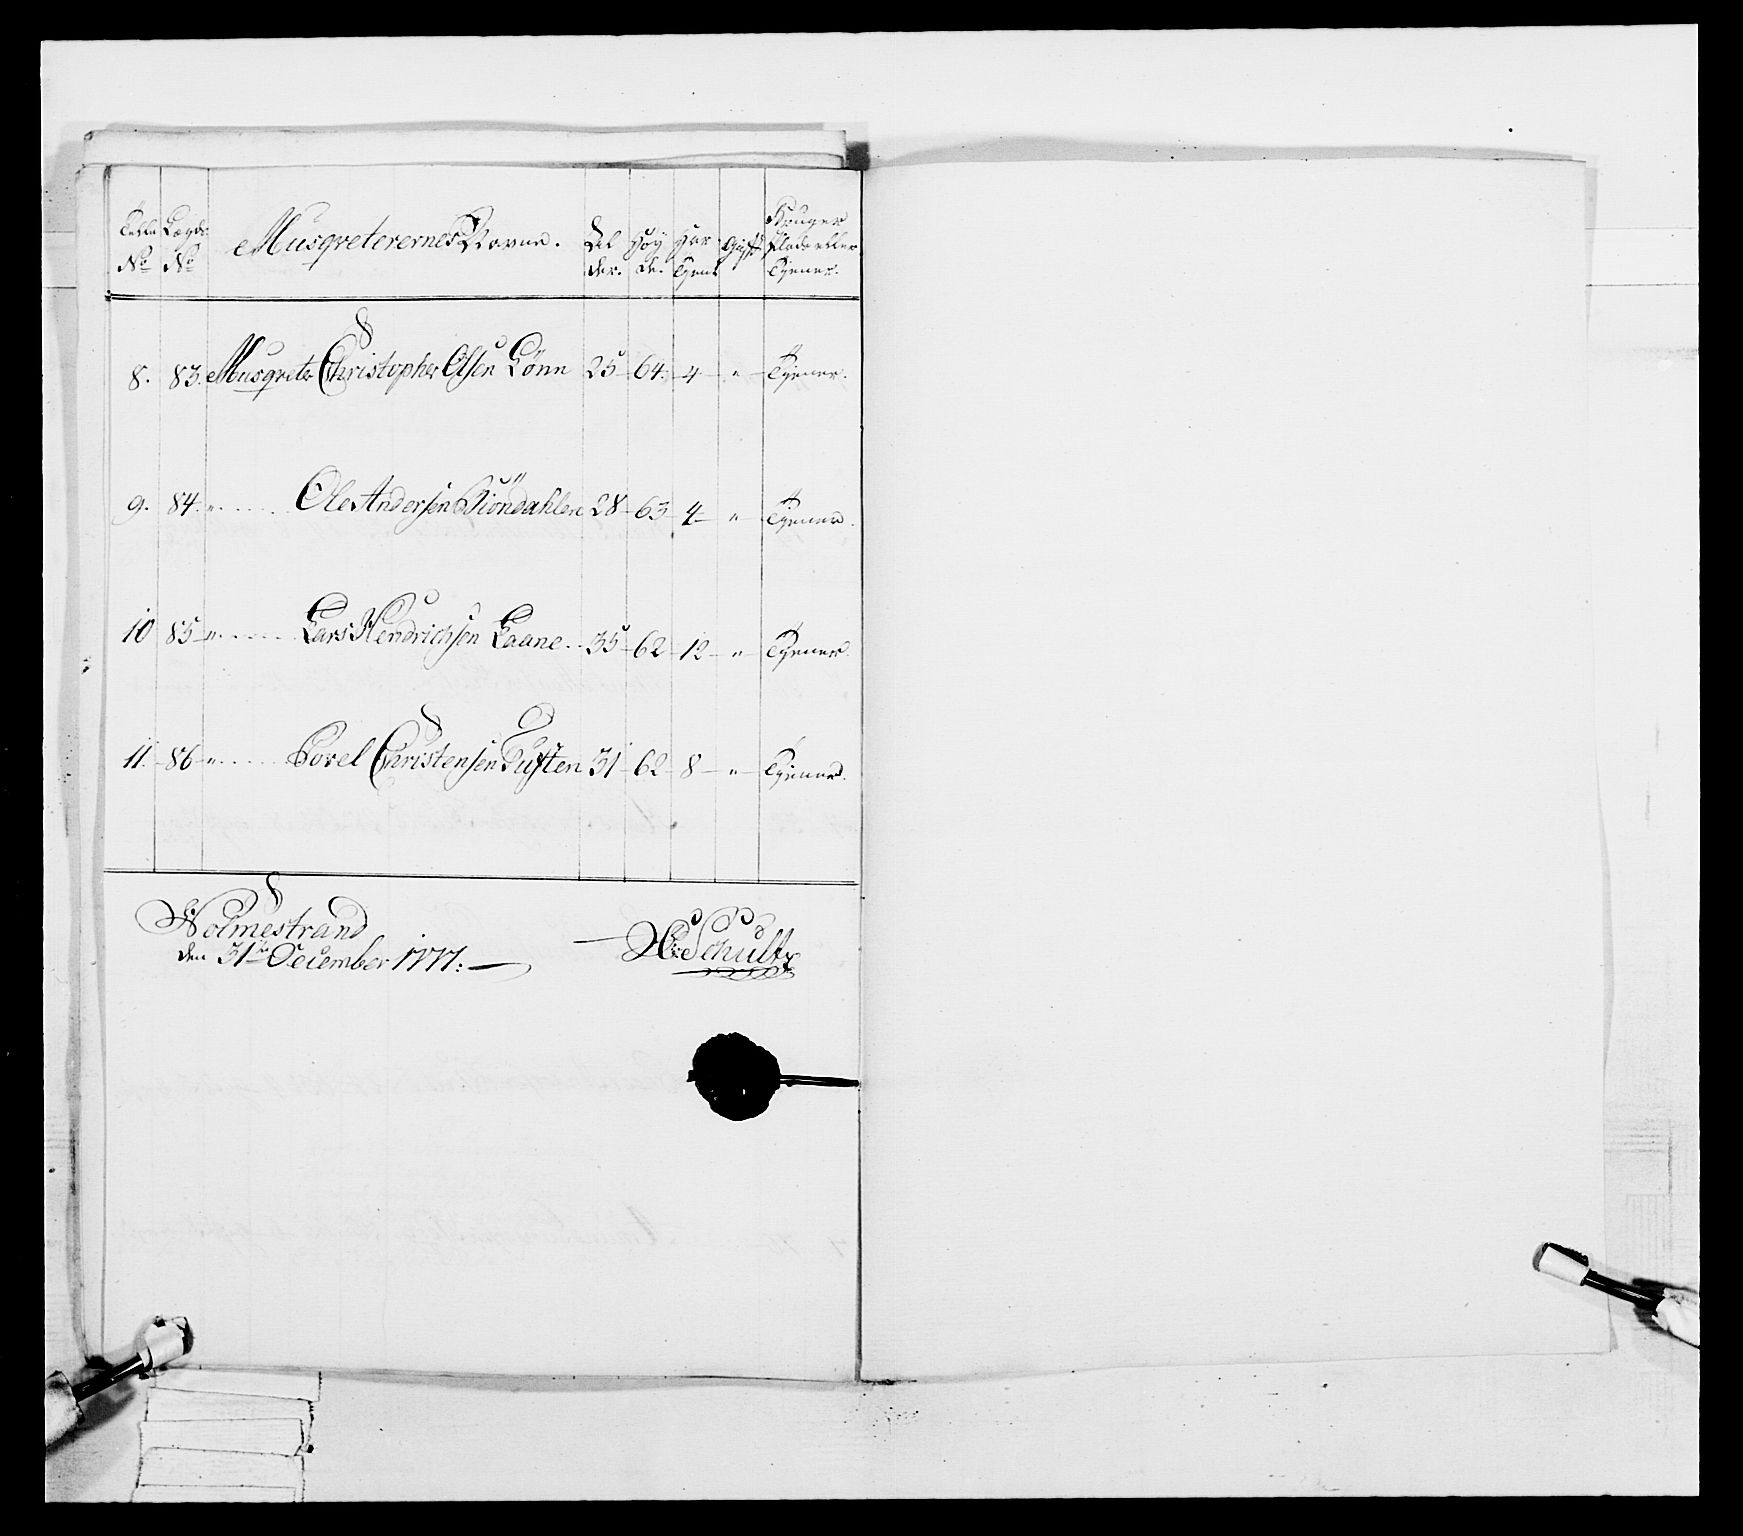 Tælle No
Lægds No
Musqveterernes Navne.
Al der.
Høy de.
Har Tjent
Gift
Bruger Plads eller Tjener.
8. 83. Musqveter Christopher Olsen Lønn 25 64. 4 " Tjener.
9. 84. " Ole Andersen Siöndahlen 28 63 4 " Tjener.
10 85 " Lars Hendrichsen Laane 35 62 12 " Tjener.
11. 86 " Povel Christensen Tuften 31 62 8 " Tjener.
Holmestrand
den 31te December 1777.
Schultz